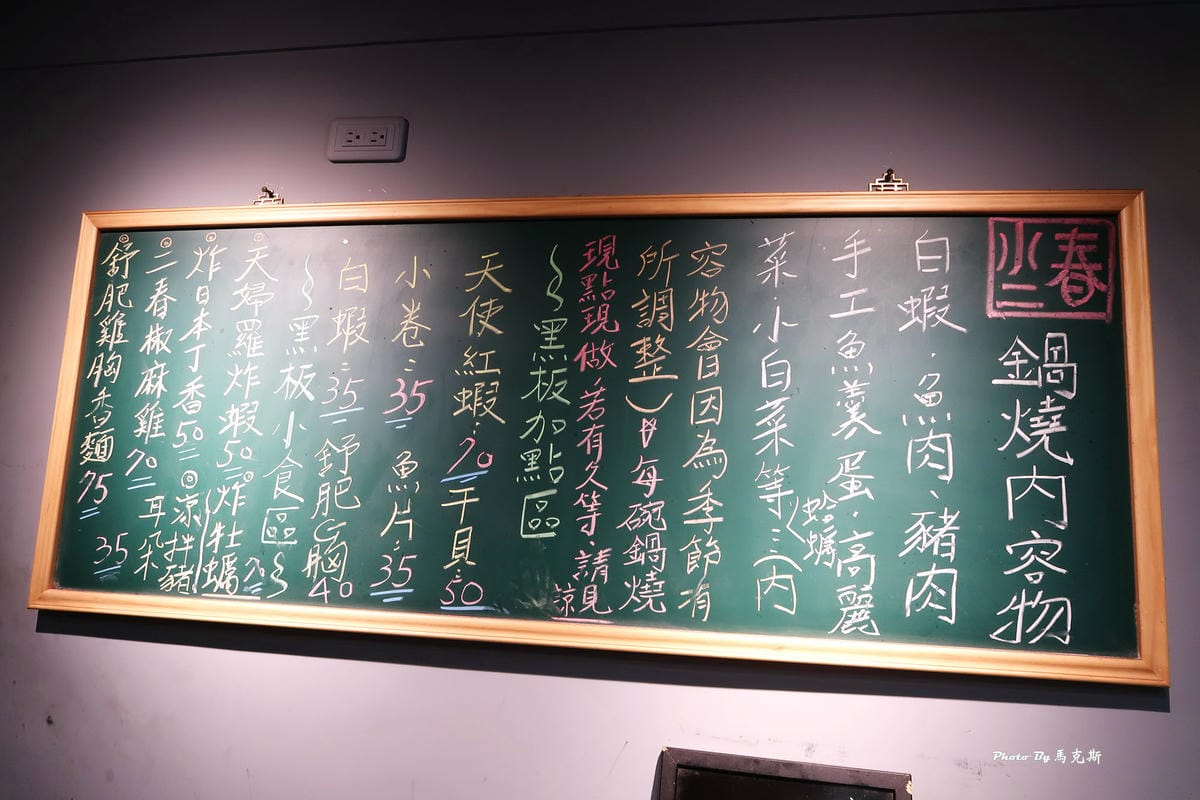 小二春
鍋燒内容物
白蝦.魚肉、豬肉
手工魚羹、蛋.高麗
蛤蠣
菜、小白菜等…(內
容物會因為季節有
所調整)每碗鍋燒
現點現做,若有久等,請見諒
~黑板加點區
天使紅蝦:70 干貝:50
小卷:35 魚片:35
白蝦:35 舒肥G胸40
~黑板小食區~
◎天婦羅炸蝦50 ◎炸牡蠣70
◎炸日本丁香50 ◎涼拌豬
◎二春椒麻雞70 耳朵
◎舒肥雞胸香麵75 35
Photo By 馬克斯